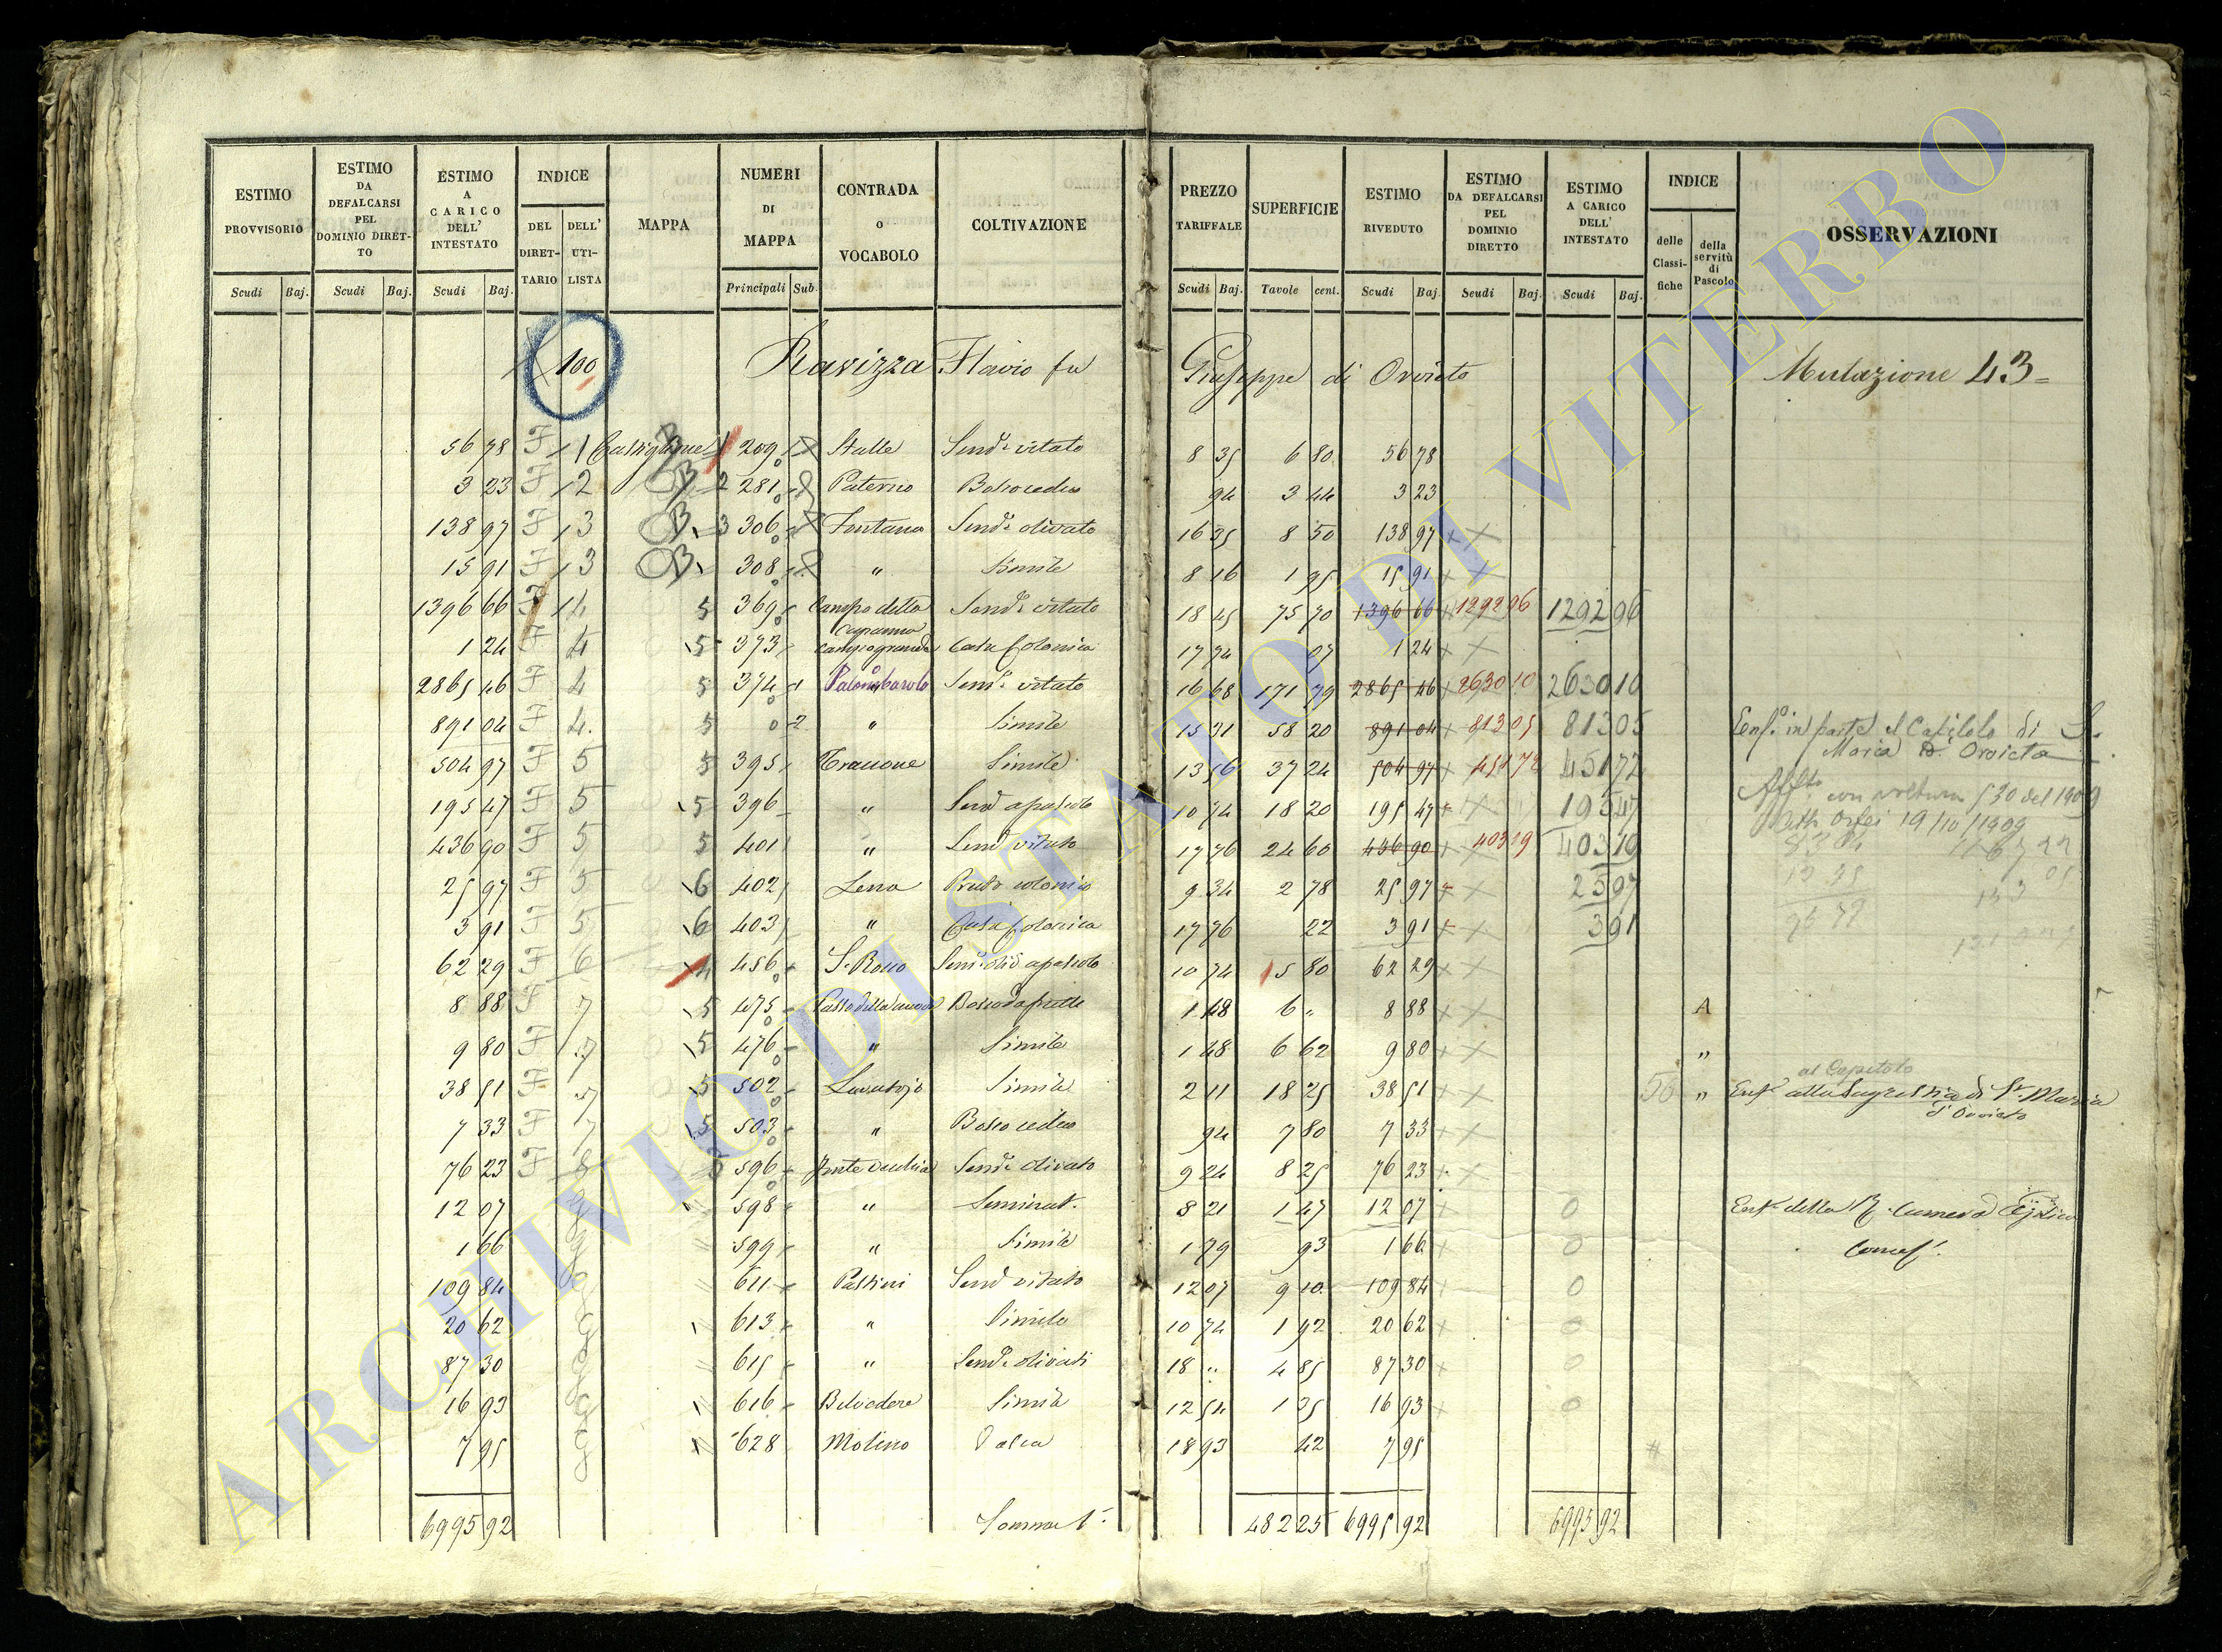 ESTIMO PROVVISORIO
ESTIMO DA DEFALCARSI PEL DOMINIO DIRET-TO
ESTIMO A CARICO DELL' INTESTATO
INDICE
DEL DIRET-TARIO
DELL' UTI-LISTA
MAPPA
NUMERI DI MAPPA
CONTRADA o VOCABOLO
COLTIVAZIONE
PREZZO TARIFFALE
SUPERFICIE
ESTIMO RIVEDUTO
ESTIMO DA DEFALCARSI PEL DOMINIO DIRETTO
ESTIMO A CARICO DELL' INTESTATO
INDICE
delle Classi-fiche
della servitù di Pascolo
OSSERVAZIONI
Scudi Baj. Scudi Baj. Scudi Baj. Principali Sub. Scudi Baj. Tavole cent. Scudi Baj. Scudi Baj. Scudi Baj.
100 Ravizza Flavio fu Giuseppe di Orvieto Mutazione 43=
56 78 F 1 209 Stalle Sem.o vitato 8 35 6 80 56 78
3 23 F 2 2 281 Paterno Bosco ceduo 94 3 44 3 23
138 97 F 3 3 306 Fontana Sem.o olivato 16 35 8 50 138 97
15 91 F 3 308 " Simile 8 16 1 95 15 91
1396 66 F 4 5 369 Campo della capanna Sem.o vitato 18 45 75 70 1396 66 1292 96 1292 96
1 24 F 4 5 373 Campogrande Casa Colonica 17 74 07 1 24
2865 46 F 4 5 374 1 Palombarolo Sem.o vitato 16 68 171 79 2865 46 2630 10 2630 10
891 04 F 4 5 0 2 " Simile 15 31 58 20 891 04 813 05 813 05
in parte il Capitolo di S. Maria d. Orvieto
504 97 F 5 5 395 Simile 13 56 37 24 504 97 451 72 451 72
con voltura 530 del 1909
195 47 F 5 5 396 " Sem apascolo 10 74 18 20 195 47 195 47
19/10/1909
436 90 F 5 5 401 " Sem vitato 17 76 24 60 436 90 403 19 403 19
25 97 F 5 6 402 Prato 9 34 2 78 25 97 25 97
3 91 F 5 6 403 " Casa Colonica 17 76 22 3 91 3 91
62 29 F 6 4 456 S. Rocco 10 74 5 80 62 29
8 88 F 7 5 475 1 48 6 " 8 88 A
9 80 F 7 5 476 " Simile 1 48 6 62 9 80 "
38 51 F 7 5 502 Simile 2 11 18 25 38 51 "
al Capitolo
alla Sagrestia di S. Maria d'Orvieto
7 33 F 7 5 503 " Bosco ceduo 94 7 80 7 33
76 23 F 8 3 596 Fonte vecchia Sem.o olivato 9 24 8 25 76 23
12 07 9 598 " Seminat. 8 21 1 47 12 07 0
1 66 9 599 " Simile 1 79 93 1 66 0
109 84 9 611 Pastini Sem vitato 12 07 9 10 109 84 0
20 62 9 613 " Simile 10 74 1 92 20 62 0
87 30 9 615 " Sem.o olivati 18 " 4 85 87 30 0
16 93 9 616 Belvedere Simile 12 54 1 35 16 93 0
7 95 9 628 Molino 18 93 42 7 95
6995 92 482 25 6995 92 6995 92
ARCHIVIO DI STATO DI VITERBO